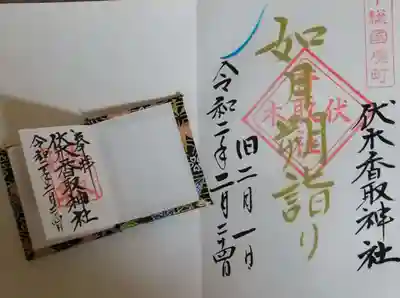 下総国境町
伏木香取神社
如月朔詣り
伏木
香取
旧二月一日
令和二年二月二十四日
奉拝
伏木香取神社
令和二年二月二十四日